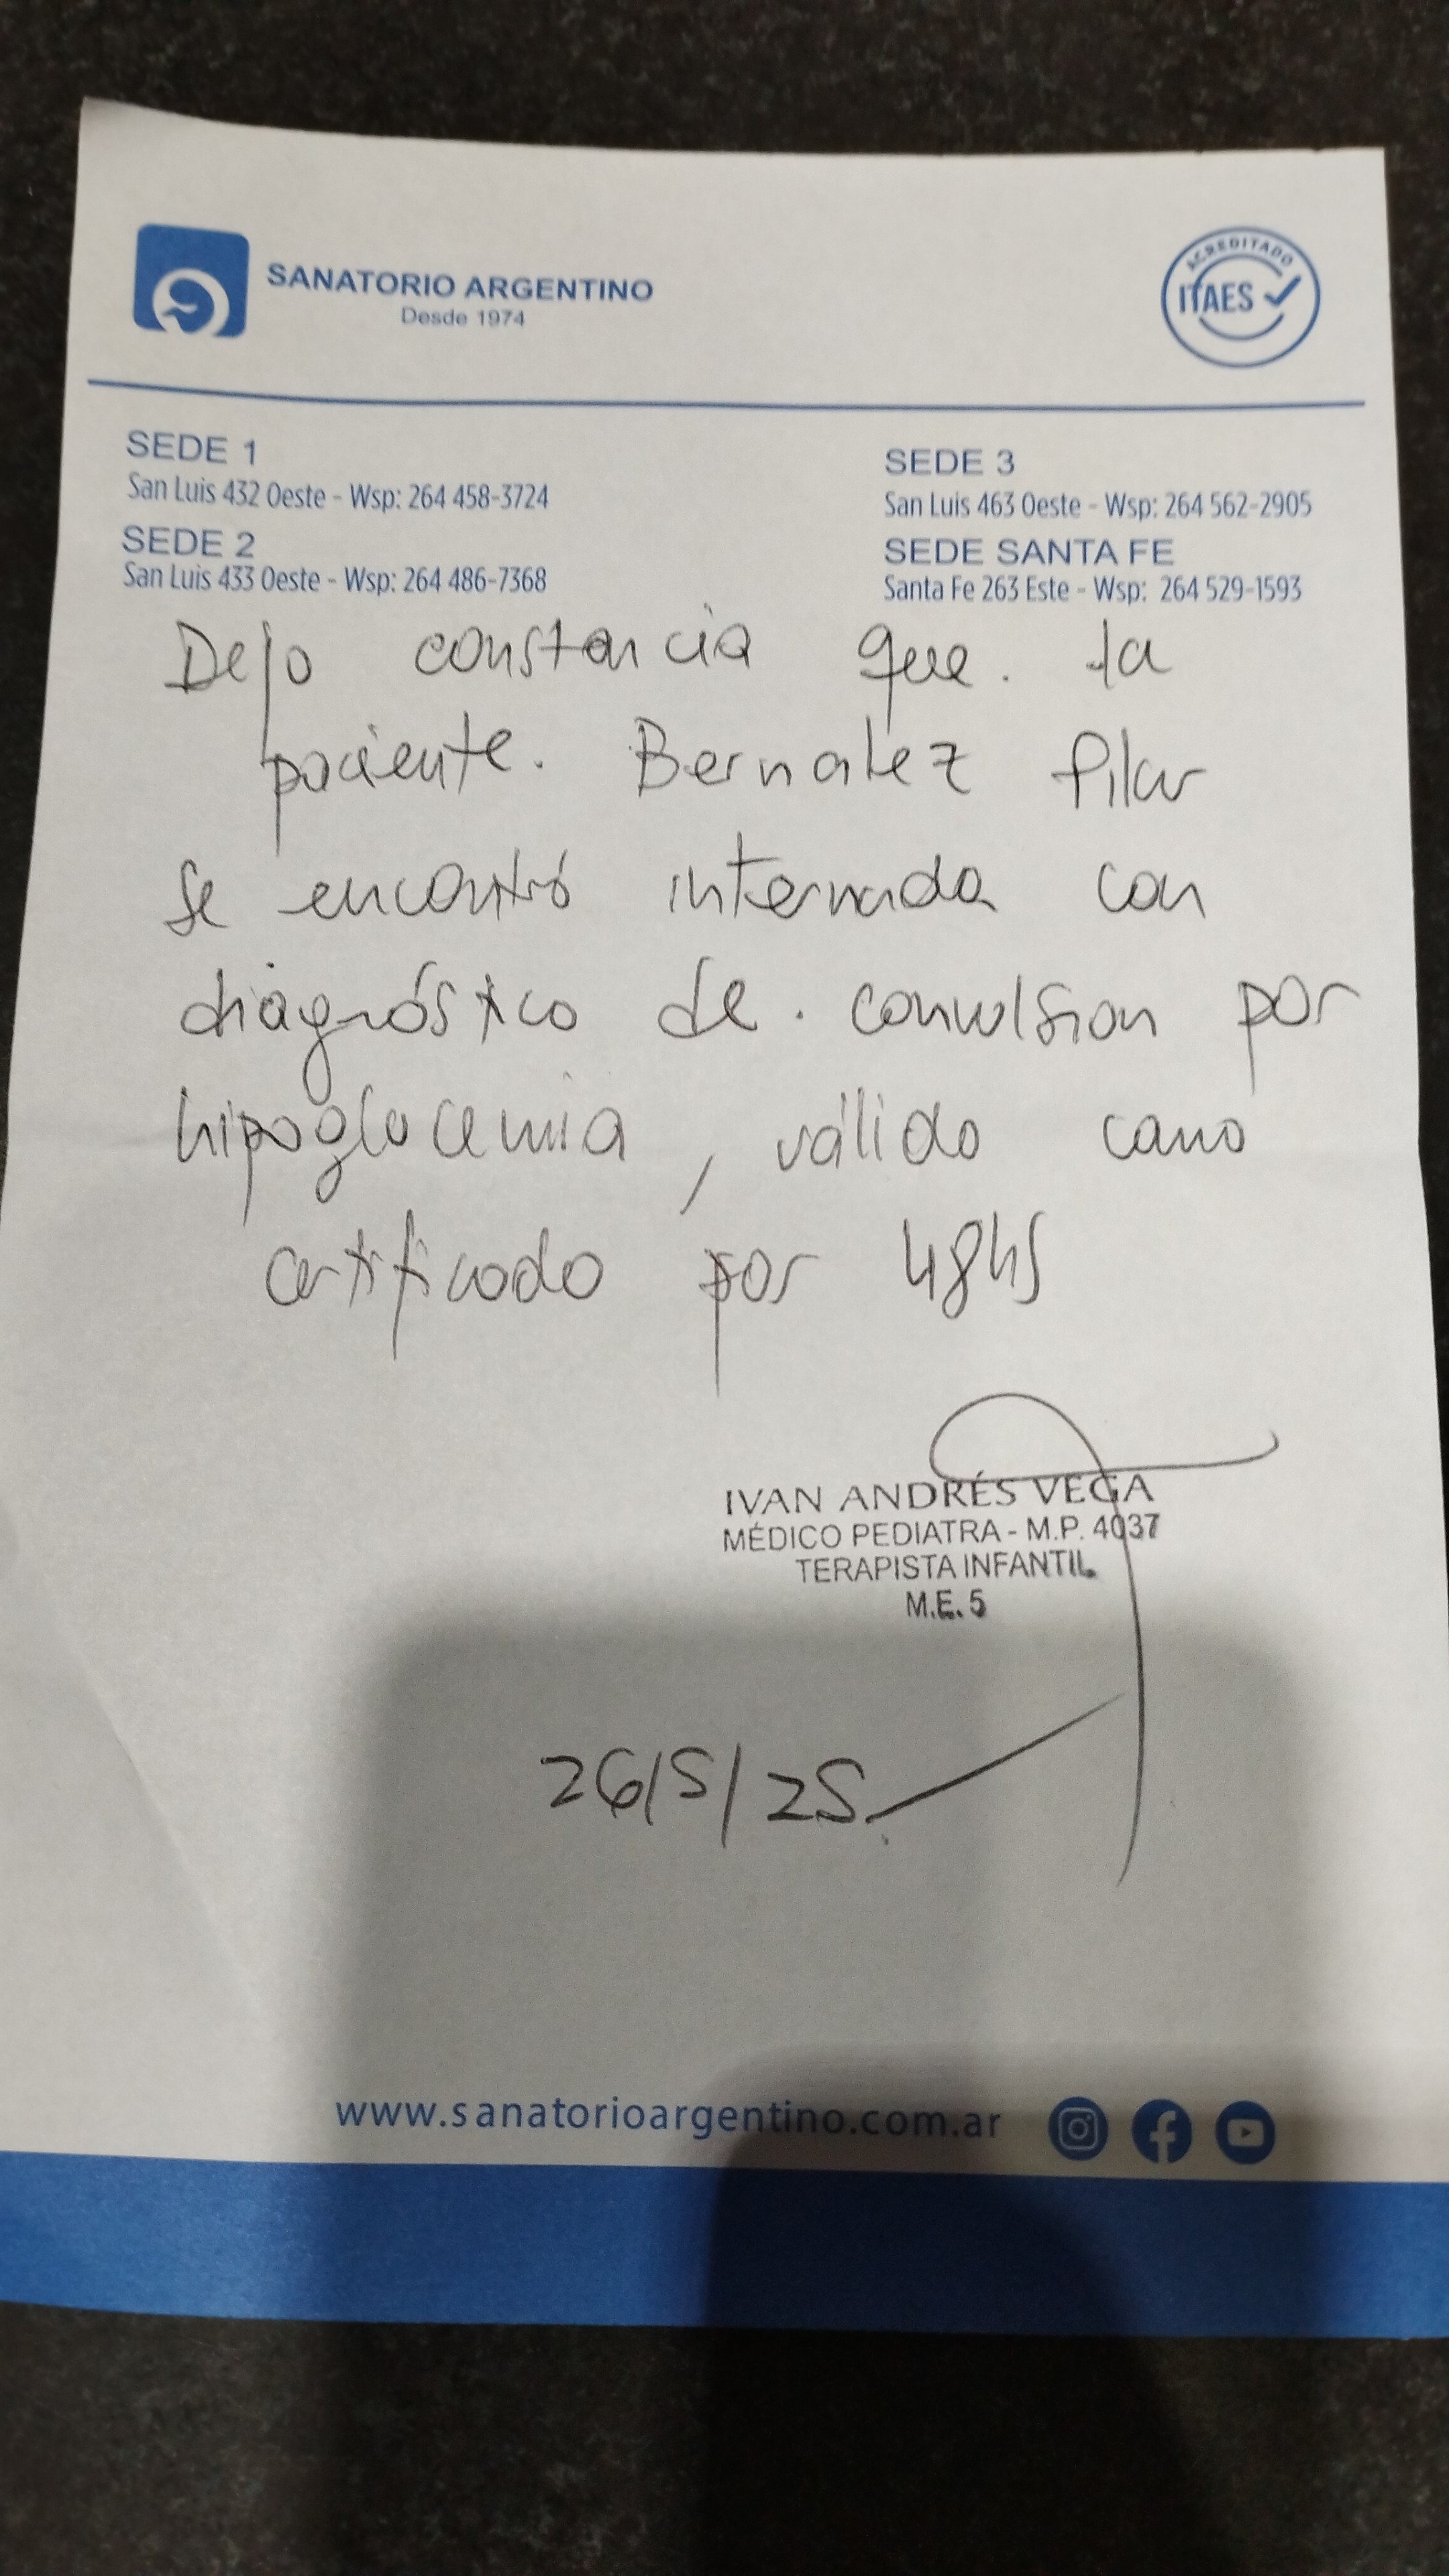 SANATORIO ARGENTINO
Desde 1974
ACREDITADO
ITAES
SEDE 1
San Luis 432 Oeste - Wsp: 264 458-3724
SEDE 2
San Luis 433 Oeste - Wsp: 264 486-7368
SEDE 3
San Luis 463 Oeste - Wsp: 264 562-2905
SEDE SANTA FE
Santa Fe 263 Este - Wsp: 264 529-1593
Dejo constancia que. la
paciente. Bernalez Pilar
se encontró internada con
diagnóstico de. convulsion por
hipoglucemia, válido como
certificado por 48hs
IVAN ANDRÉS VEGA
MÉDICO PEDIATRA - M.P. 4037
TERAPISTA INFANTIL
M.E. 5
26/5/25
www.sanatorioargentino.com.ar